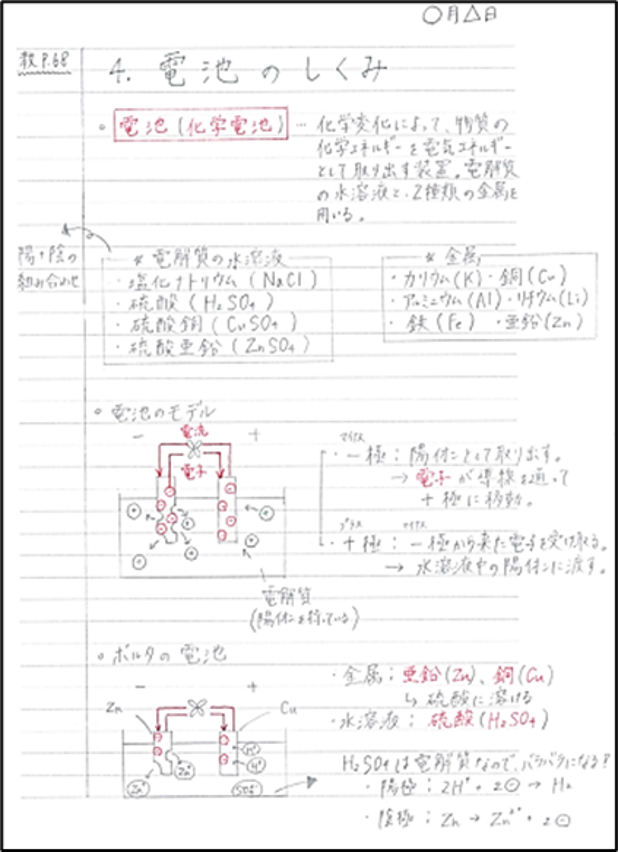 ○月△日
教P.68
4. 電池のしくみ
○ 電池(化学電池) … 化学変化によって、物質の
化学エネルギーを電気エネルギー
として取り出す装置。電解質
の水溶液と、2種類の金属を
用いる。
陽+陰の
組み合わせ
☆ 電解質の水溶液
・塩化ナトリウム (NaCl)
・硫酸 (H₂SO₄)
・硫酸銅 (CuSO₄)
・硫酸亜鉛 (ZnSO₄)
☆ 金属
・カリウム(K) ・銅(Cu)
・アルミニウム(Al) ・リチウム(Li)
・鉄(Fe) ・亜鉛(Zn)
○ 電池のモデル
− 電流 +
電子
電解質
(陽イオンを持っている)
マイナス
・−極 : 陽イオンとして取り出す。
→ 電子が導線を通って
+極に移動。
プラス マイナス
・+極 : −極から来た電子を受け取る。
→ 水溶液中の陽イオンに渡す。
○ ボルタの電池
− +
Zn Cu
H⁺
H⁺
Zn²⁺ Zn²⁺ SO₄²⁻
・金属 : 亜鉛(Zn)、銅(Cu)
↳ 硫酸に溶ける
・水溶液 : 硫酸(H₂SO₄)
H₂SO₄は電解質なので、バラバラになる!
・陽極 : 2H⁺ + 2⊖ → H₂
・陰極 : Zn → Zn²⁺ + 2⊖